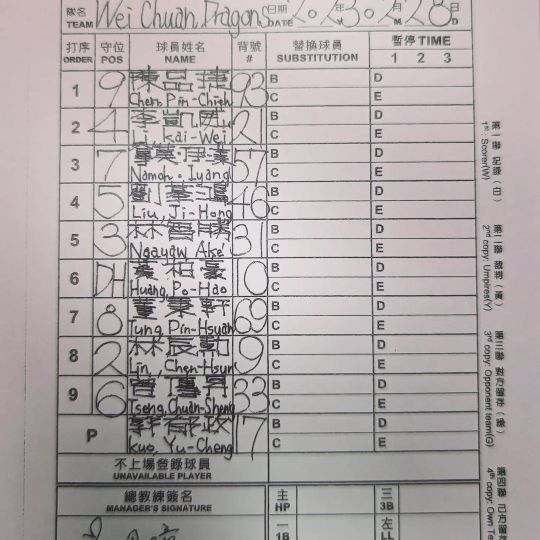 隊名 TEAM Wei Chuan Dragons 日期 DATE 2023年 Y 02月 M 28日 D
打序 守位 球員姓名 背號 替換球員 暫停 TIME
ORDER POS NAME # SUBSTITUTION 1 2 3
1 9 陳品捷 93 B D
Chen, Pin-Chieh C E
2 4 李凱威 2 B D
Li, Kai-Wei C E
3 7 57 B D
Namoh. Iyang C E
4 5 劉基鴻 46 B D
Liu, Ji-Hong C E
5 3 林智勝 31 B D
Ngayaw Ake' C E
6 DH 黃柏豪 10 B D
Huang, Po-Hao C E
7 8 董秉軒 69 B D
Tung, Pin-Hsuan C E
8 2 林辰勳 9 B D
Lin, Chen-Hsun C E
9 6 曾傳昇 33 B D
Tseng, Chuan-Sheng C E
P 郭郁政 17 B D
Kuo Yu-Cheng C E
不上場登錄球員
UNAVAILABLE PLAYER
總教練簽名 主 三
MANAGER'S SIGNATURE HP 3B
一 左
1B LL
第一聯 記錄(白)
1st : Scorer(W)
第二聯 裁判(黃)
2nd copy: Umpires(Y)
第三聯 對方留存(綠)
3rd copy: Opponent team(G)
第四聯 己方留存
4th copy: Own Te